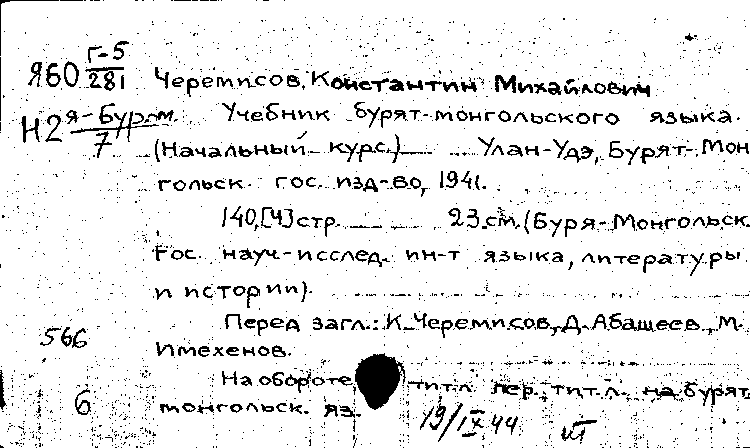 Я60 Г-5/281 Черемисов, Константин Михайлович
Н2 Я-Бур.-м./7 Учебник бурят-монгольского языка.
(Начальный курс.) Улан-Удэ, Бурят-Мон
гольск. гос. изд-во, 1941.
140,[4] стр. 23 см. (Буря-Монгольск.
Гос. науч-исслед. ин-т языка, литературы
и истории).
566 Перед загл.: К. Черемисов, Д. Абашеев, М.
Имехенов.
На обороте тит.л. пер., тит.л. на бурят
6 монгольск. яз. 19/IX 44